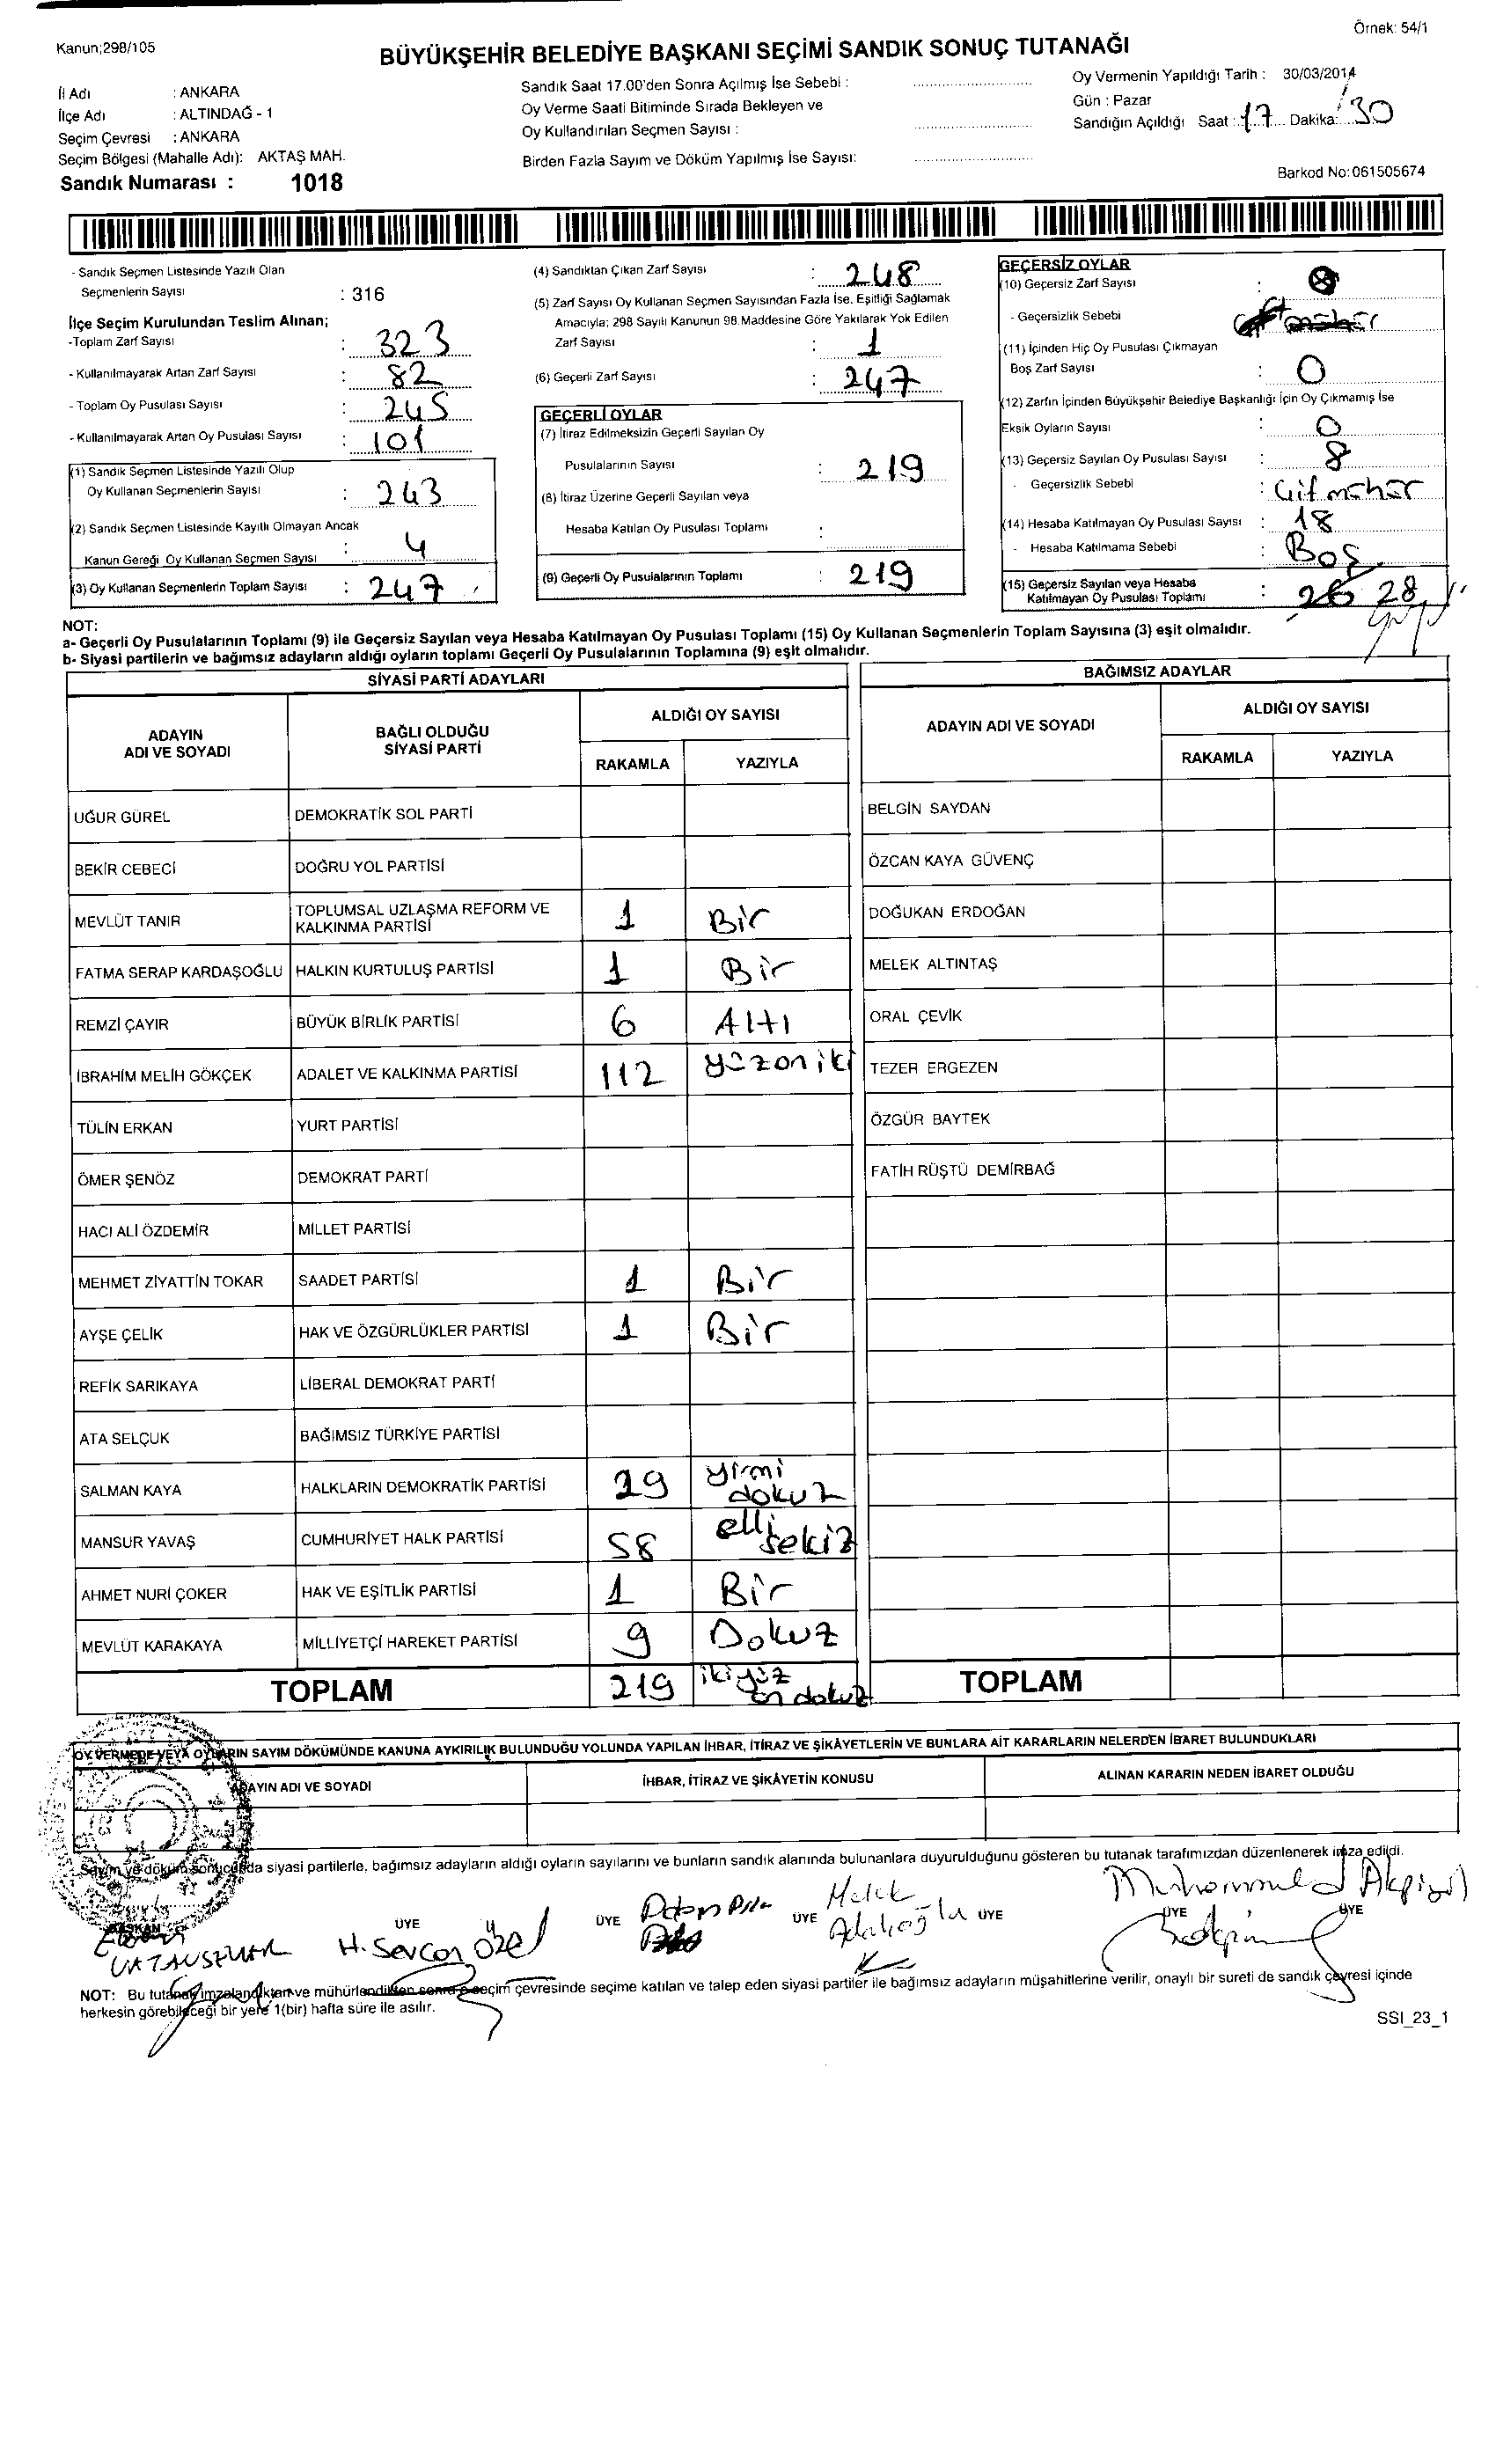 Örnek: 54/1
Kanun;298/105
BÜYÜKŞEHİR BELEDİYE BAŞKANI SEÇİMİ SANDIK SONUÇ TUTANAĞI
İl Adı : ANKARA
İlçe Adı : ALTINDAĞ - 1
Seçim Çevresi : ANKARA
Seçim Bölgesi (Mahalle Adı): AKTAŞ MAH.
Sandık Numarası : 1018
Sandık Saat 17.00'den Sonra Açılmış İse Sebebi :
Oy Verme Saati Bitiminde Sırada Bekleyen ve
Oy Kullandırılan Seçmen Sayısı :
Birden Fazla Sayım ve Döküm Yapılmış İse Sayısı:
Oy Vermenin Yapıldığı Tarih : 30/03/2014
Gün : Pazar
Sandığın Açıldığı Saat : 17 Dakika: 30
Barkod No:061505674
- Sandık Seçmen Listesinde Yazılı Olan
Seçmenlerin Sayısı : 316
İlçe Seçim Kurulundan Teslim Alınan;
-Toplam Zarf Sayısı : 323
- Kullanılmayarak Artan Zarf Sayısı : 82
- Toplam Oy Pusulası Sayısı : 245
- Kullanılmayarak Artan Oy Pusulası Sayısı : 101
(1) Sandık Seçmen Listesinde Yazılı Olup
Oy Kullanan Seçmenlerin Sayısı : 243
(2) Sandık Seçmen Listesinde Kayıtlı Olmayan Ancak
Kanun Gereği Oy Kullanan Seçmen Sayısı : 4
(3) Oy Kullanan Seçmenlerin Toplam Sayısı : 247
(4) Sandıktan Çıkan Zarf Sayısı : 248
(5) Zarf Sayısı Oy Kullanan Seçmen Sayısından Fazla İse, Eşitliği Sağlamak
Amacıyla; 298 Sayılı Kanunun 98.Maddesine Göre Yakılarak Yok Edilen
Zarf Sayısı : 1
(6) Geçerli Zarf Sayısı : 247
GEÇERLİ OYLAR
(7) İtiraz Edilmeksizin Geçerli Sayılan Oy
Pusulalarının Sayısı : 219
(8) İtiraz Üzerine Geçerli Sayılan veya
Hesaba Katılan Oy Pusulası Toplamı :
(9) Geçerli Oy Pusulalarının Toplamı : 219
GEÇERSİZ OYLAR
(10) Geçersiz Zarf Sayısı :
- Geçersizlik Sebebi
(11) İçinden Hiç Oy Pusulası Çıkmayan
Boş Zarf Sayısı : 0
(12) Zarfın İçinden Büyükşehir Belediye Başkanlığı İçin Oy Çıkmamış İse
Eksik Oyların Sayısı : 0
(13) Geçersiz Sayılan Oy Pusulası Sayısı : 8
- Geçersizlik Sebebi : Çift mühür
(14) Hesaba Katılmayan Oy Pusulası Sayısı : 18
- Hesaba Katılmama Sebebi : Boş
(15) Geçersiz Sayılan veya Hesaba
Katılmayan Oy Pusulası Toplamı : 26 28
NOT:
a- Geçerli Oy Pusulalarının Toplamı (9) ile Geçersiz Sayılan veya Hesaba Katılmayan Oy Pusulası Toplamı (15) Oy Kullanan Seçmenlerin Toplam Sayısına (3) eşit olmalıdır.
b- Siyasi partilerin ve bağımsız adayların aldığı oyların toplamı Geçerli Oy Pusulalarının Toplamına (9) eşit olmalıdır.
SİYASİ PARTİ ADAYLARI
ADAYIN
ADI VE SOYADI
BAĞLI OLDUĞU
SİYASİ PARTİ
ALDIĞI OY SAYISI
RAKAMLA YAZIYLA
UĞUR GÜREL DEMOKRATİK SOL PARTİ
BEKİR CEBECİ DOĞRU YOL PARTİSİ
MEVLÜT TANIR TOPLUMSAL UZLAŞMA REFORM VE
KALKINMA PARTİSİ 1 Bir
FATMA SERAP KARDAŞOĞLU HALKIN KURTULUŞ PARTİSİ 1 Bir
REMZİ ÇAYIR BÜYÜK BİRLİK PARTİSİ 6 Altı
İBRAHİM MELİH GÖKÇEK ADALET VE KALKINMA PARTİSİ 112 yüzoniki
TÜLİN ERKAN YURT PARTİSİ
ÖMER ŞENÖZ DEMOKRAT PARTİ
HACI ALİ ÖZDEMİR MİLLET PARTİSİ
MEHMET ZİYATTİN TOKAR SAADET PARTİSİ 1 Bir
AYŞE ÇELİK HAK VE ÖZGÜRLÜKLER PARTİSİ 1 Bir
REFİK SARIKAYA LİBERAL DEMOKRAT PARTİ
ATA SELÇUK BAĞIMSIZ TÜRKİYE PARTİSİ
SALMAN KAYA HALKLARIN DEMOKRATİK PARTİSİ 29 yirmi
dokuz
MANSUR YAVAŞ CUMHURİYET HALK PARTİSİ 58 elli
sekiz
AHMET NURİ ÇOKER HAK VE EŞİTLİK PARTİSİ 1 Bir
MEVLÜT KARAKAYA MİLLİYETÇİ HAREKET PARTİSİ 9 Dokuz
TOPLAM 219 ikiyüz
on dokuz
BAĞIMSIZ ADAYLAR
ADAYIN ADI VE SOYADI
ALDIĞI OY SAYISI
RAKAMLA YAZIYLA
BELGİN SAYDAN
ÖZCAN KAYA GÜVENÇ
DOĞUKAN ERDOĞAN
MELEK ALTINTAŞ
ORAL ÇEVİK
TEZER ERGEZEN
ÖZGÜR BAYTEK
FATİH RÜŞTÜ DEMİRBAĞ
TOPLAM
OY VERMEDE VEYA OYLARIN SAYIM DÖKÜMÜNDE KANUNA AYKIRILIK BULUNDUĞU YOLUNDA YAPILAN İHBAR, İTİRAZ VE ŞİKÂYETLERİN VE BUNLARA AİT KARARLARIN NELERDEN İBARET BULUNDUKLARI
ADAYIN ADI VE SOYADI
İHBAR, İTİRAZ VE ŞİKÂYETİN KONUSU
ALINAN KARARIN NEDEN İBARET OLDUĞU
Sayım ve döküm sonucunda siyasi partilerle, bağımsız adayların aldığı oyların sayılarını ve bunların sandık alanında bulunanlara duyurulduğunu gösteren bu tutanak tarafımızdan düzenlenerek imza edildi.
BAŞKAN ÜYE ÜYE ÜYE ÜYE ÜYE ÜYE
H. Sevcan Özel
Melek
Muhammed
NOT: Bu tutanak imzalandıktan ve mühürlendikten sonra seçim çevresinde seçime katılan ve talep eden siyasi partiler ile bağımsız adayların müşahitlerine verilir, onaylı bir sureti de sandık çevresi içinde
herkesin görebileceği bir yere 1(bir) hafta süre ile asılır.
SSI_23_1